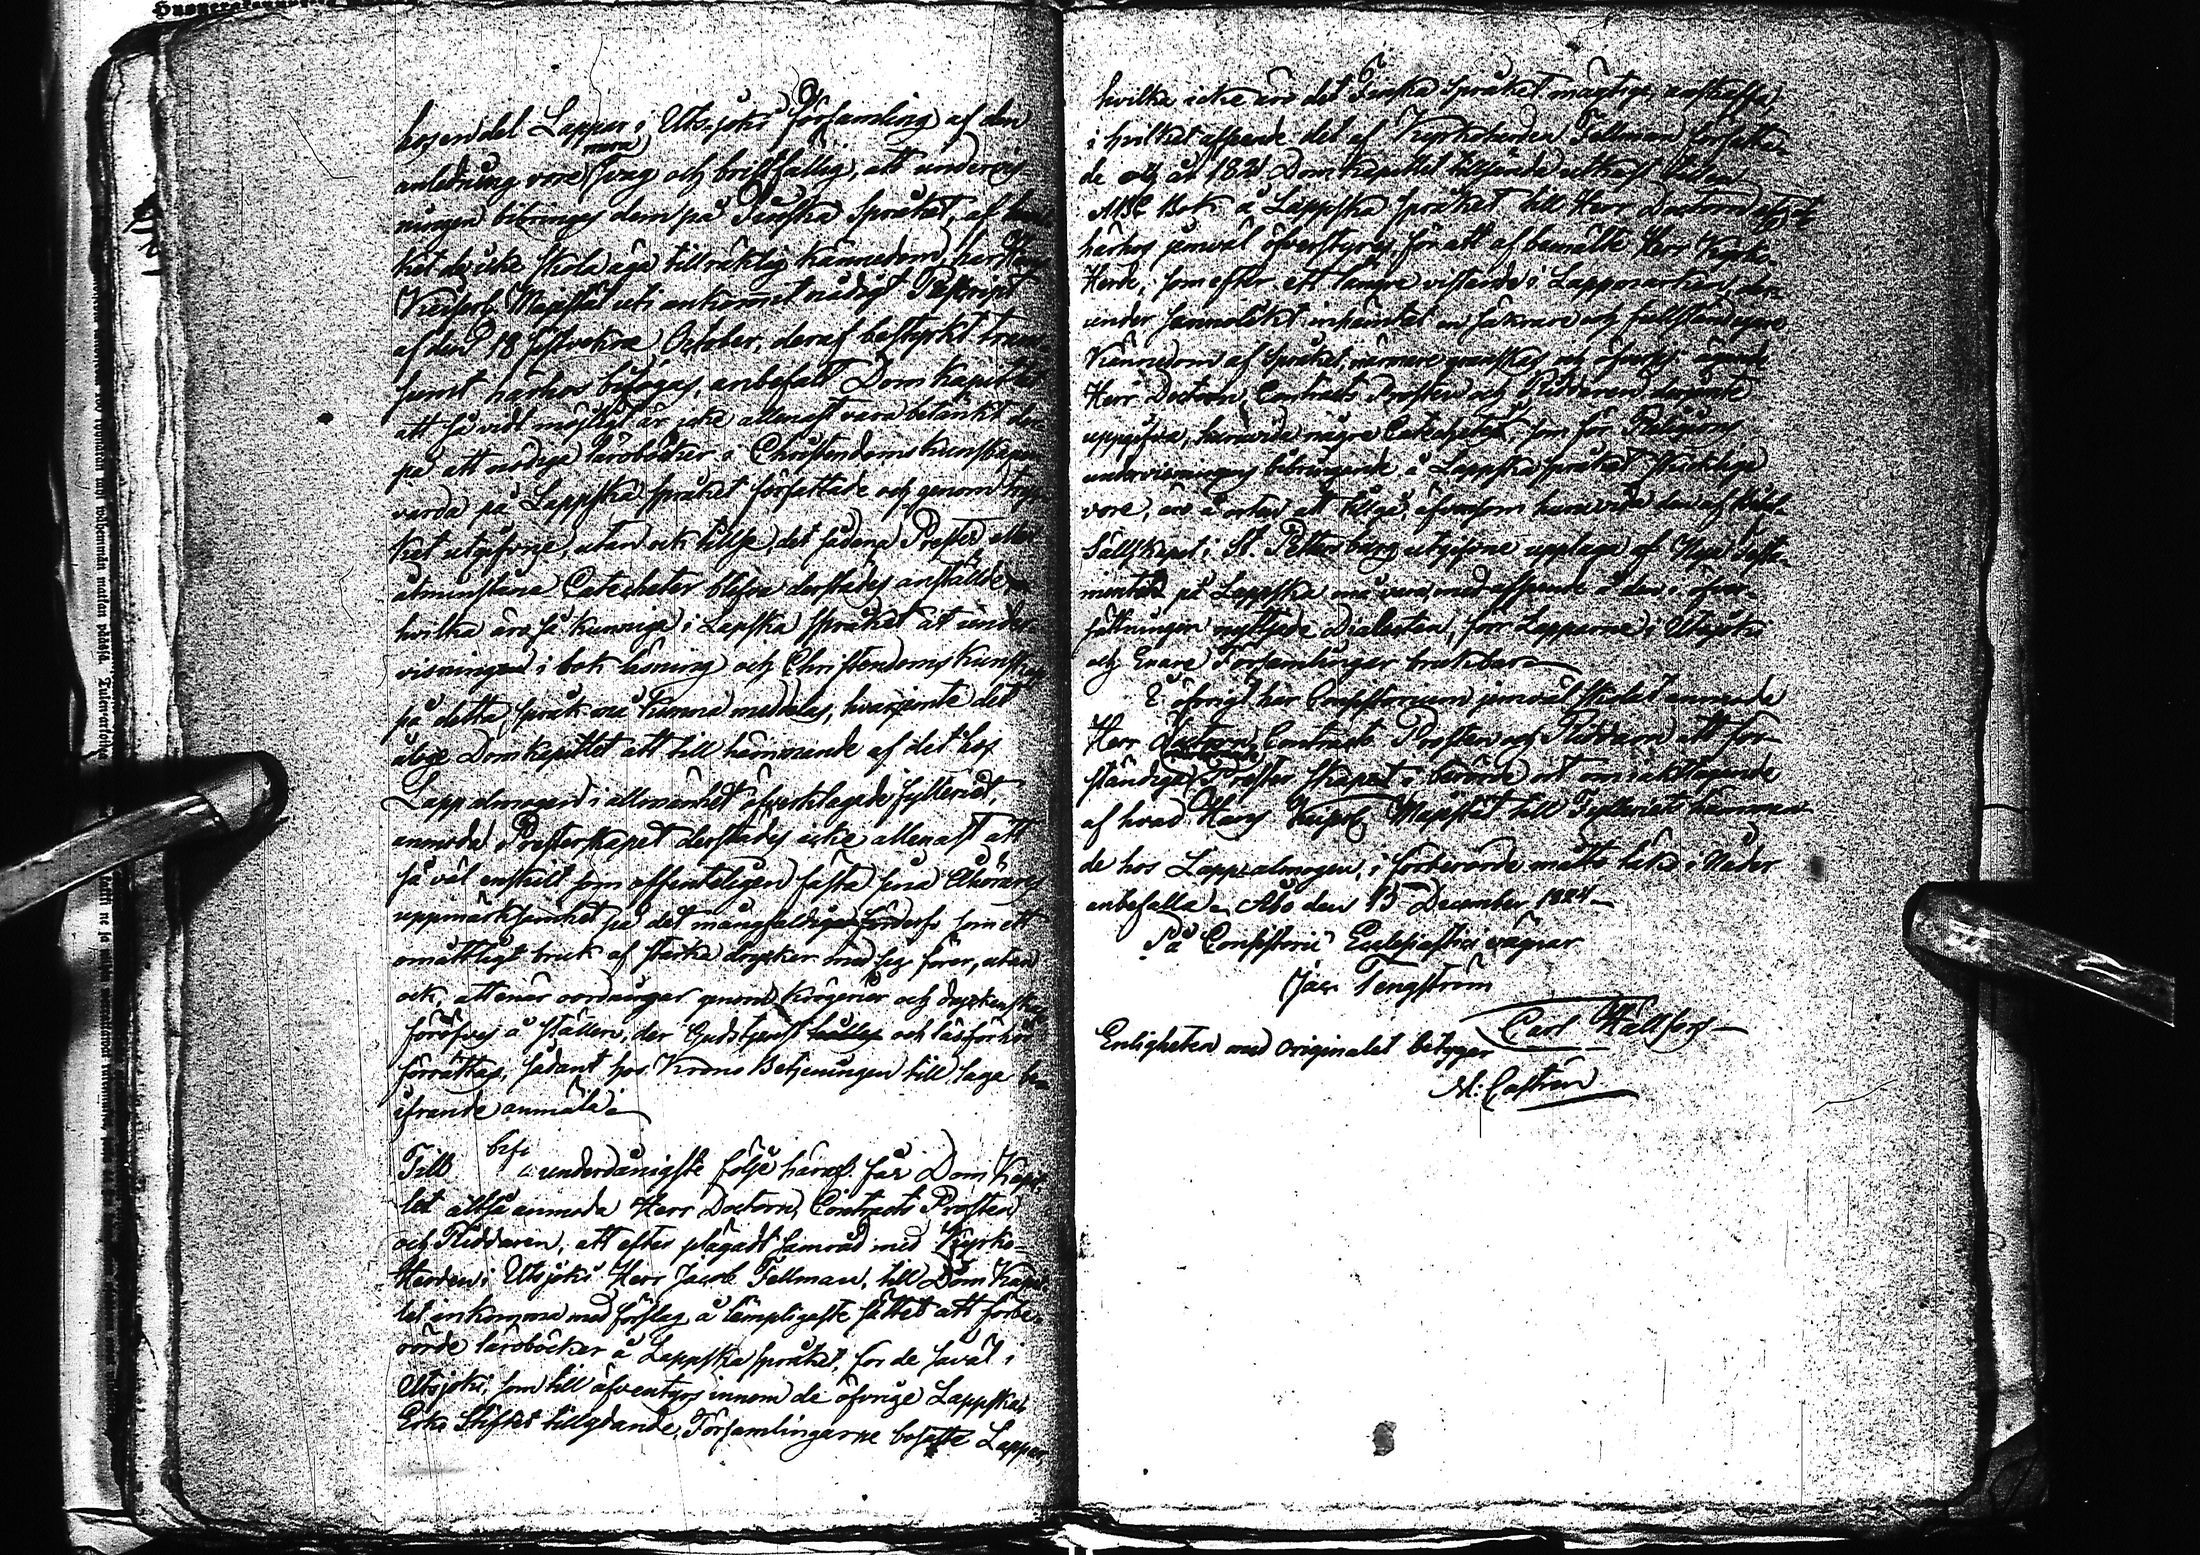 hos en del Lappar i Utsjoki Församling af den
anledning vore mera svag och bristfällig, att undervis-
ningen bibringes dem på Finska Språket, af
ket de icke skola äga tillräklig kännedom, har Hans
Keiserl. Majestät uti ankommet nådigt Rescript
af den 18 sistvekne October, deraf bestyrkt tran-
sumt härhos bifogas, anbefalt Dom Kapitlet
att så vidt möjligt är icke allenast vara betänkt der-
på att nödige läroböcker i Christendoms kunskapen
varda på Lappska språket författade och genom tryc-
ket utgifvne, utan ock tillse, det sådane Prester eller
åtminstone Catecheter blifva derstädes anställde
hvilka äro så kunnige i Lapska Språket at under-
visningen i bok läsning och Christendoms kunskap
på detta språk må kunna meddelas, hvarjemte det
ålegat Domkapitlet att till hämmande af det hos
Lappalmogen i allmänhet öfverklagade fylleriet,
anmoda Presterskapet derstädes icke allenast att
så väl enskilt som offenteligen fästa sina Åhörares
uppmärksamhet på det mångfaldiga förderf, som ett
omåttligt bruk af starka drycker med sig förer, utan
ock, att när oordningar genom krögerier och dryckenskap
föröfves å ställen, der Gudstjenst hålles och läsförhör
förrättas, sådant hos Krono Betjeningen till laga be-
ifrande anmäla.
Till befi
underdånigste följe häraf får Dom Kapit-
let altså anmoda Herr Doctorn, Contracts Prosten
och Riddaren, att efter plägadt samråd med Kyrko-
Herden i Utsjoki Herr Jacob Fellman, till Dom Kapit-
let inkomma med förslag å lämpligaste sättet att förbe-
rörde läroböcker å Lappska språket, for de såväl i
Utsjoki, som till äfventyrs innom de öfrige Lappska
Erke Stiftet tillydande Församlingarne bosatte Lappar,
hvilka icke äro det Finska Språket mägtige, anskaffa
i hvilket afseende det af Kyrkoherden Fellman författa-
de och år 1821 Domkapitlet tillsände utkast till en
ABC Bok å Lappska språket till Herr Doctorn etc etc
härhos jemväl öfverstyres, för att af bemälte Herr Kyrko-
Herde, som efter ett längre vistande i Lappmarken, der-
under sannolikt inhämtat en säkrare och fullständigare
Kännedom af språket, närmare granskas och öfverses; ägande
Herr Doctorn, Contracts Prosten och Riddaren derjemte
uppgifva, huruvida några Catecheter som för Religions
undervisningens bibringande å Lappska språket skicklige
vore, äro å orten att tillgå, äfvensom huruvida den af Bibel-
Sällskapet i St. Petersburg utgifne upplaga af Nya Testa-
mentet på Lappska må vara, med afseende å den i öfver-
sättningen nyttjade Dialecten, för Lapparne i Utsjoki
och Enare Församlingar brukbar.
I öfrigt har Consistorium jemväl skolat anmoda
Herr Doctorn Contracts Prosten och Riddaren att för-
ständiga Prester skapet i berörde ort om iakttagande
af hvad Hans Keiserl. Majestät till Fylleriets hämman-
de hos Lappalmogen, i förberörde måtto täkts i Nåder
anbefalla. Åbo den 15 December 1824.
På Consistorii Ecclesiastici vägnar
Jac. Tengström
Carl Hällfors
Enligheten med originalet betygar
M: Castrén